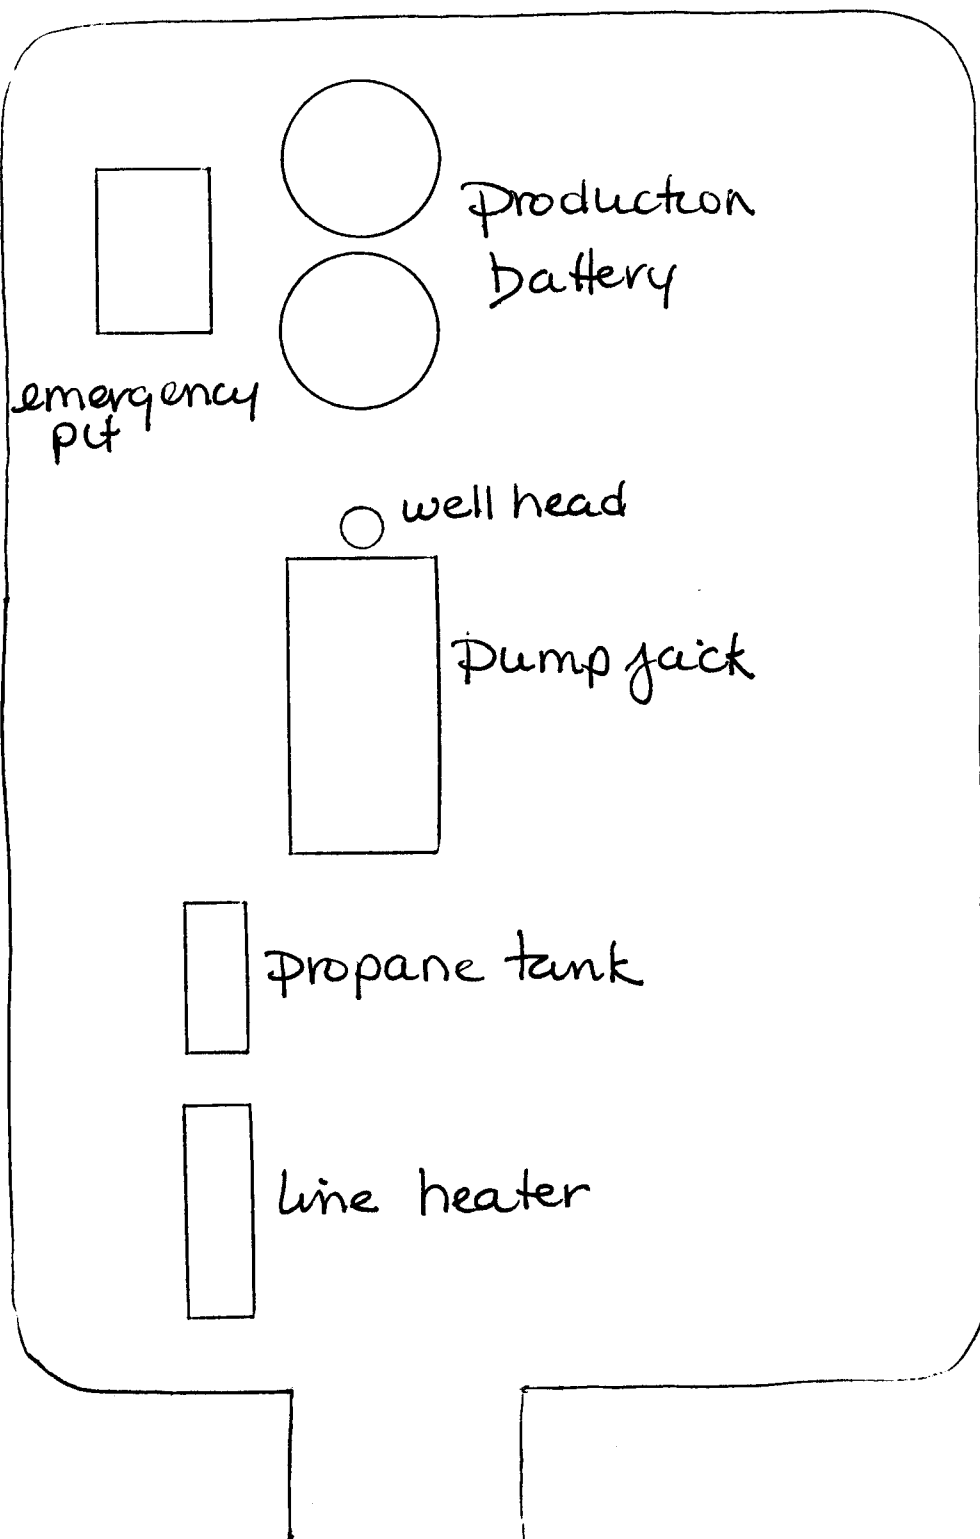 production
battery
emergency
pit
well head
pump jack
propane tank
line heater